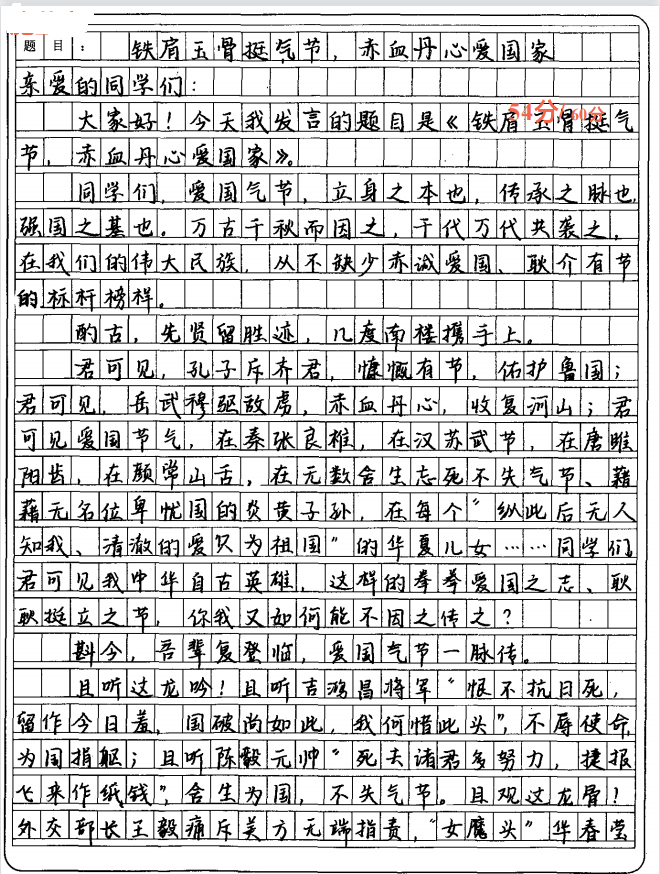 题目：铁肩玉骨挺气节，赤血丹心爱国家
亲爱的同学们：
54分/60分
大家好！今天我发言的题目是《铁肩玉骨挺气
节，赤血丹心爱国家》。
同学们，爱国气节，立身之本也，传承之脉也，
强国之基也。万古千秋而因之，千代万代共袭之，
在我们的伟大民族，从不缺少赤诚爱国、耿介有节
的标杆榜样。
酌古，先贤留胜迹，几度南楼携手上。
君可见，孔子斥齐君，慷慨有节，佑护鲁国；
君可见，岳武穆驱敌虏，赤血丹心，收复河山；君
可见爱国节气，在秦张良椎，在汉苏武节，在唐睢
阳齿，在颜常山舌，在无数舍生忘死不失气节、藉
藉无名位卑忧国的炎黄子孙，在每个“纵此后无人
知我、清澈的爱只为祖国”的华夏儿女……同学们
君可见我中华自古英雄，这样的拳拳爱国之志、耿
耿挺立之节，你我又如何能不因之传之？
斟今，吾辈复登临，爱国气节一脉传。
且听这龙吟！且听吉鸿昌将军“恨不抗日死，
留作今日羞，国破尚如此，我何惜此头”，不辱使命，
为国捐躯；且听陈毅元帅“死去诸君多努力，捷报
飞来作纸钱”，舍生为国，不失气节。且观这龙骨！
外交部长王毅痛斥美方无端指责，“女魔头”华春莹